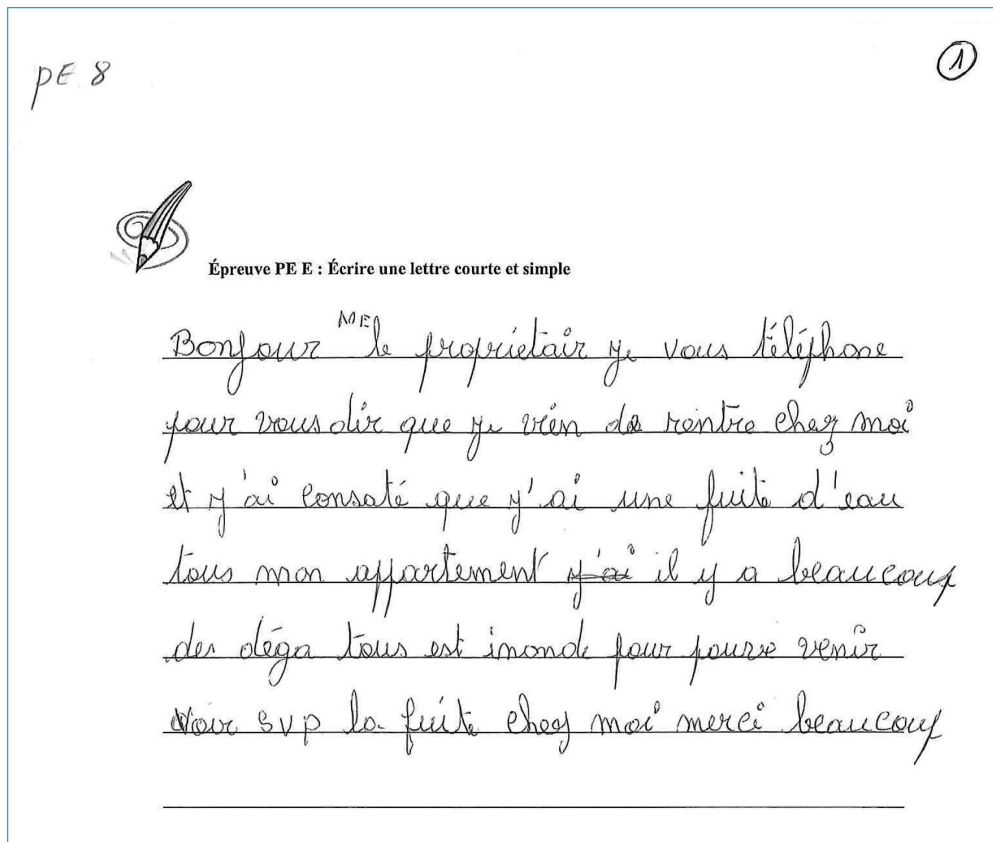 PE 8
1
Épreuve PE E : Écrire une lettre courte et simple
Bonjour ME le proprietair ye vous téléphone
pour vous dir que ye vien de rentre chez moi
et y'ai consaté que y'ai une fuite d'eau
tous mon appartement y'ai il y a beaucoup
des déga tous est inonde pour pouve venir
voir SVP la fuite chez moi merci beaucoup